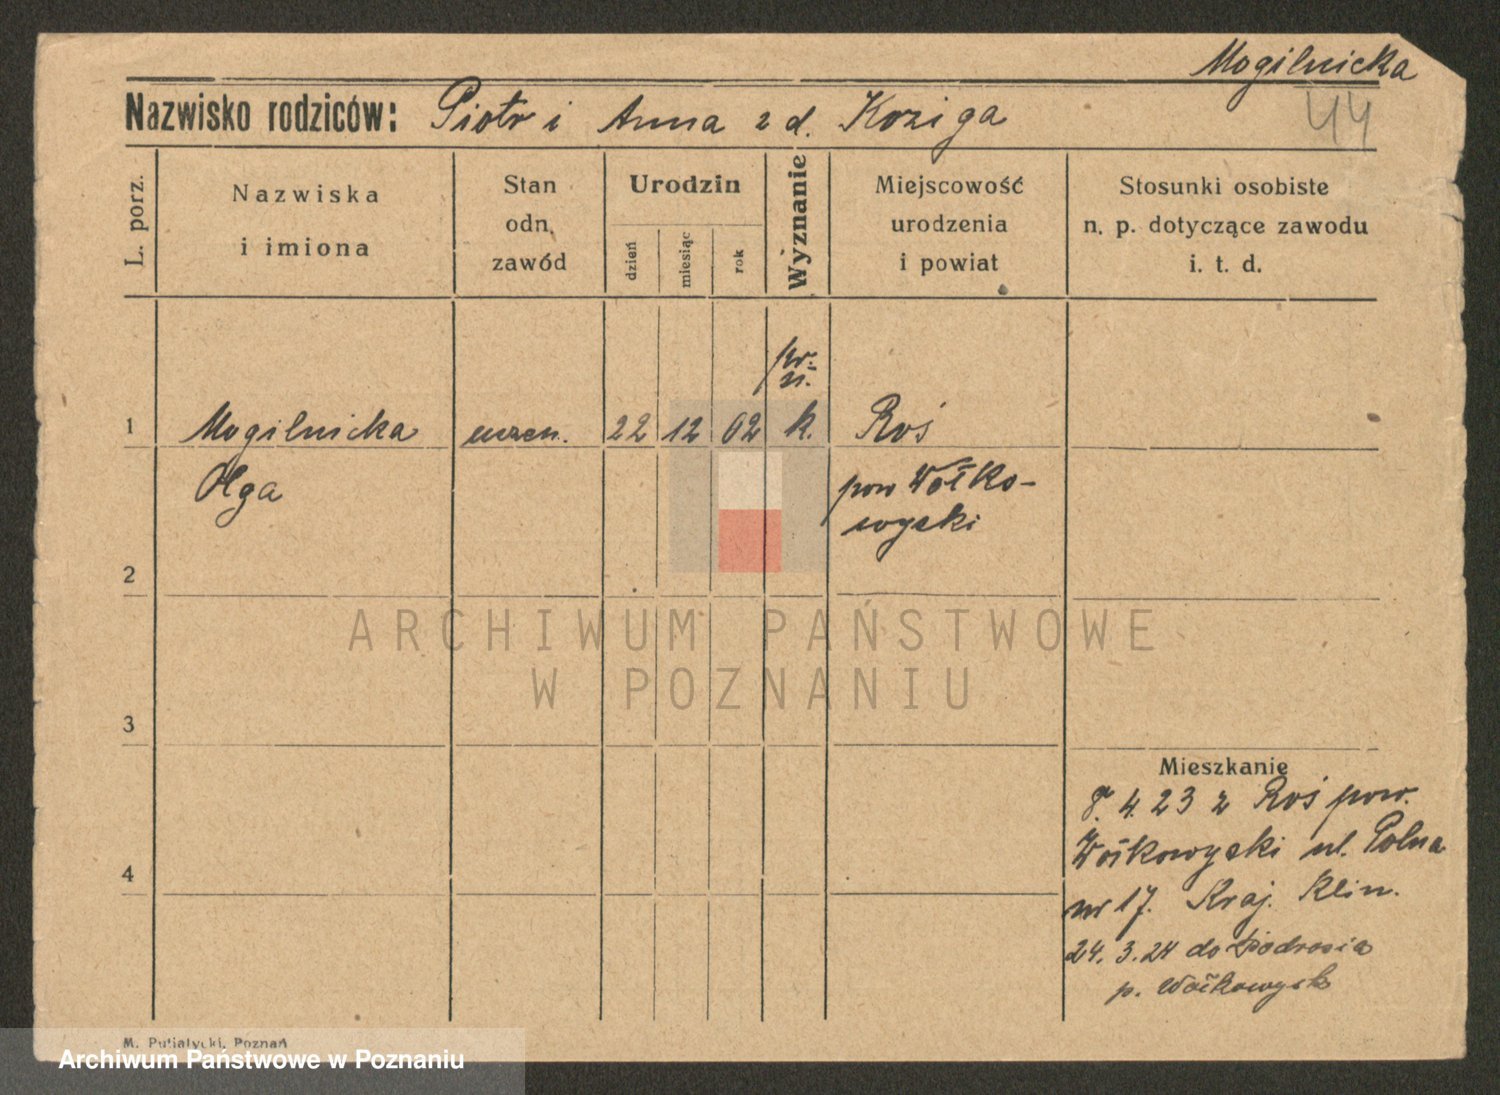 Mogilnicka
44
Nazwisko rodziców: Piotr i Anna z d. Koziga
L. porz.
Nazwiska
i imiona
Stan
odn.
zawód
Urodzin
dzień
miesiąc
rok
Wyznanie
Miejscowość
urodzenia
i powiat
Stosunki osobiste
n. p. dotyczące zawodu
i. t. d.
1 Mogilnicka uczen. 22 12 02 k. Roś
Olga pow Wołko-
wyski
2
3
4
Mieszkanie
4 23 z Roś pow.
Wołkowyski ul. Polna
nr 17. Kraj. Klin.
24. 3. 24 do Podrosia
p. Wołkowysk
M. Putiatycki, Poznań
ARCHIWUM PAŃSTWOWE
W POZNANIU
Archiwum Państwowe w Poznaniu